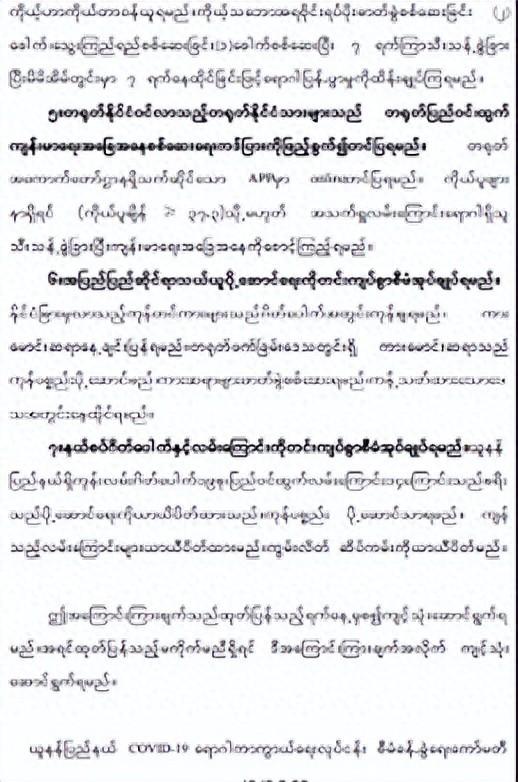 ကိုယ့်ဟာကိုယ်တာဝန်ယူရမည်။ကိုယ့်သဘောအရခွင်းရပ်ပိုးဓာတ်ခွဲစစ်ဆေးခြင်း (၂)
ခေါက်။သွေးကြည်ရည်စစ်ဆေးခြင်း(၁)ခေါက်စစ်ဆေးပြီး ၇ ရက်ကြာသီးသန့်ခွဲခြား
ပြီးမိမိအိမ်တွင်းမှာ ၇ ရက်နေထိုင်ခြင်းဖြင့်ရောဂါပြန့်ပွားမှုကိုထိန်းချုပ်ကြရမည်။
၅။တရုတ်နိုင်ငံဝင်လာသည့်တရုတ်နိုင်ငံသားများသည် တရုတ်ပြည်ဝင်ထွက်
ကျန်းမာရေးအခြေအနေစစ်ဆေးရေးကဒ်ပြားကိုဖြည့်စွက်၍တင်ပြရမည်။ တရုတ်
အကောက်တော်ဌာနရှိသက်ဆိုင်သော APPမှာ တင်ပြရမည်။ ကိုယ်ပူဖျား
နာရှိရပ် (ကိုယ်ပူချိန် ≥ ၃၇.၃)သို့မဟုတ် အသက်ရှူလမ်းကြောင်းရောဂါရှိသူ
သီးသန့်ခွဲခြားပြီးကျန်းမာရေးအခြေအနေကိုစောင့်ကြည့်ရမည်။
၆။အပြည်ပြည်ဆိုင်ရာသယ်ယူပို့ဆောင်ရေးကိုတင်းကျပ်စွာစီမံအုပ်ချုပ်ရမည်။
နိုင်ငံခြားမှလာသည့်ကုန်တင်ကားများသည်ဂိတ်ပေါက်အတွင်းကုန်ချရမည်။ ကား
မောင်းဆရာနေ့ချင်းပြန်ရမည်။တရုတ်ဖက်ခြမ်းဒေသတွင်းရှိ ကားမောင်းဆရာသည်
ကုန်ပစ္စည်းပို့ဆောင်မည့်ကားဆရာများဓာတ်ခွဲစစ်ဆေးရမည်။ကန့်သတ်ထားသောနေ
ရာအတွင်းနေထိုင်ရမည်။
၇။နယ်စပ်ဂိတ်ပေါက်နှင့်လမ်းကြောင်းကိုတင်းကျပ်စွာစီမံအုပ်ချုပ်ရမည်။ယူနန်
ပြည်နယ်ရှိကုန်းလမ်းဂိတ်ပေါက်၁၉ခု၊ပြည်ဝင်ထွက်လမ်းကြောင်း၁၄ကြောင်းသည်ခရီး
သည်ပို့ဆောင်ရေးကိုယာယီပိတ်ထားသည်။ကုန်ပစ္စည်း ပို့ဆောင်သာရမည်။ ကျန်
သည့်လမ်းကြောင်းများယာယီပိတ်ထားမည်။ကျွမ်းလိတ် ဆိပ်ကမ်းကိုယာယီပိတ်မည်။
ဤအကြောင်းကြားချက်သည်ထုတ်ပြန်သည့်ရက်နေ့မှစ၍ကျင့်သုံးဆောင်ရွက်ရ
မည်။အရင်ထုတ်ပြန်သည့်မကိုက်မညီရှိရင် ဒီအကြောင်းကြားချက်အလိုက် ကျင့်သုံး
ဆောင်ရွက်ရမည်။
ယူနန်ပြည်နယ် COVID-19 ရောဂါကာကွယ်ရေးလုပ်ငန်း စီမံခန့်ခွဲရေးကော်မတီ